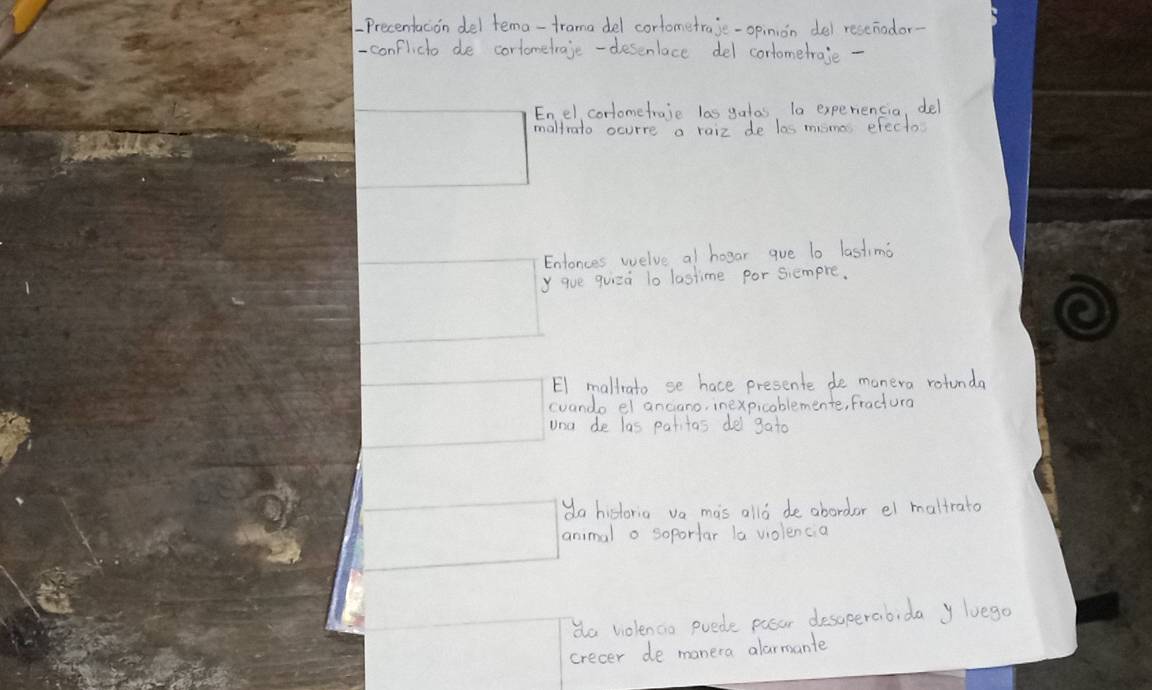 -Precentación del tema-trama del cortometraje-opinión del reseñador-
-conflicto de cortometraje -desenlace del cortometraje-
En el cortometraje los gatos la experiencia del
maltrato ocurre a raiz de los mismos efectos
Entonces vuelve al hogar que lo lastimó
y que quizá lo lastime por siempre.
El maltrato se hace presente de manera rotunda
cuando el anciano, inexpicablemente, fractura
una de las patitas del gato
La historia va más allá de abordar el maltrato
animal o soportar la violencia
La violencia puede pasar desapercibida y luego
crecer de manera alarmante